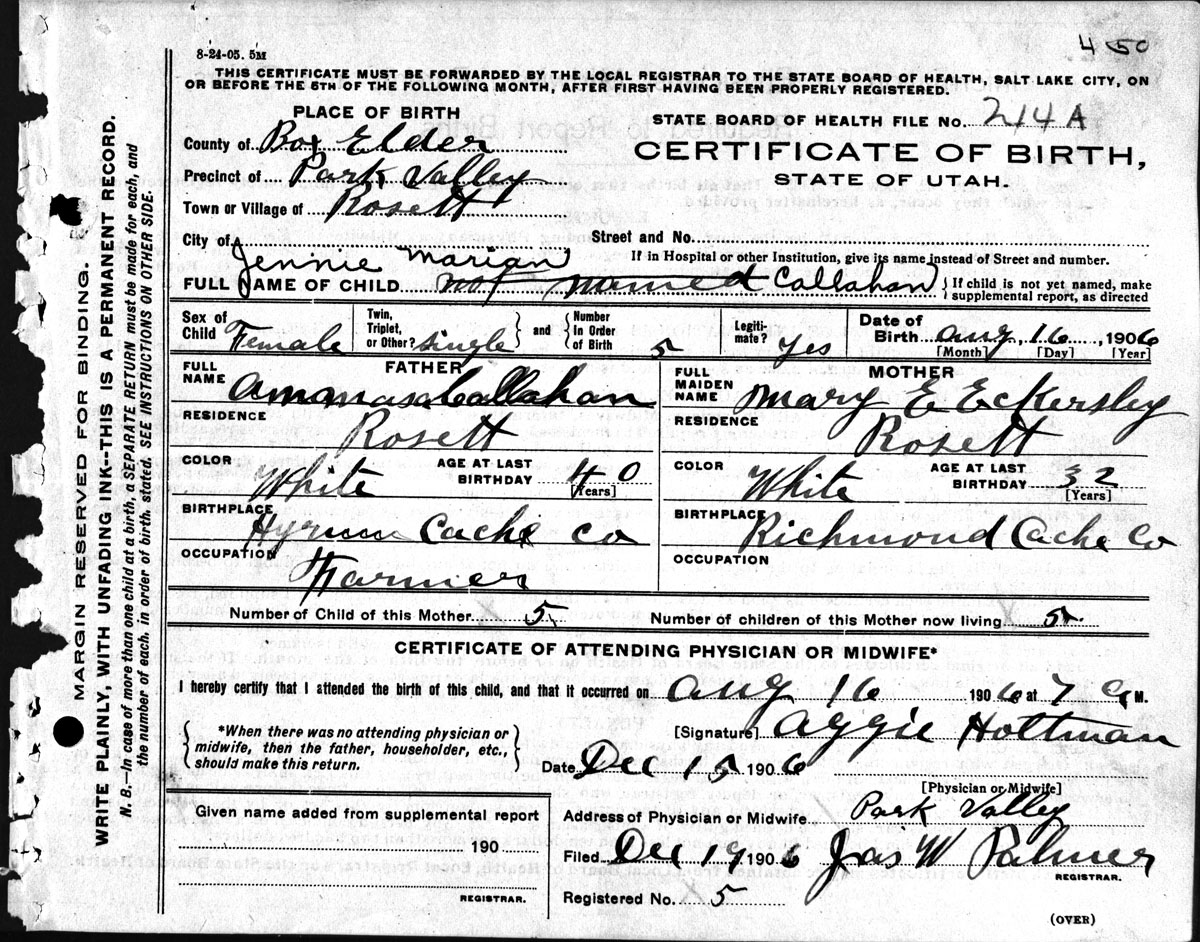 8-24-05. 5M
450
THIS CERTIFICATE MUST BE FORWARDED BY THE LOCAL REGISTRAR TO THE STATE BOARD OF HEALTH, SALT LAKE CITY, ON
OR BEFORE THE 5TH OF THE FOLLOWING MONTH, AFTER FIRST HAVING BEEN PROPERLY REGISTERED.
PLACE OF BIRTH
STATE BOARD OF HEALTH FILE No. 214A
County of Box Elder
CERTIFICATE OF BIRTH,
Precinct of Park Valley
STATE OF UTAH.
Town or Village of Rosett
City of
Street and No.
Jennie Marian
If in Hospital or other Institution, give its name instead of Street and number.
FULL NAME OF CHILD not named Callahan { If child is not yet named, make
supplemental report, as directed
Sex of Child Female
Twin, Triplet, or Other? single } and { Number In Order of Birth 5
Legiti-mate? Yes
Date of Birth Aug, 16, 1906
[Month] [Day] [Year]
FATHER
FULL NAME Amanasa Callahan
RESIDENCE Rosett
COLOR White AGE AT LAST BIRTHDAY 40
[Years]
BIRTHPLACE Hyrum Cache Co
OCCUPATION Farmer
MOTHER
FULL MAIDEN NAME Mary E Eckersley
RESIDENCE Rosett
COLOR White AGE AT LAST BIRTHDAY 32
[Years]
BIRTHPLACE Richmond Cache Co
OCCUPATION
Number of Child of this Mother 5 Number of children of this Mother now living 5
CERTIFICATE OF ATTENDING PHYSICIAN OR MIDWIFE*
I hereby certify that I attended the birth of this child, and that it occurred on Aug 16 1906 at 7 A M.
{ *When there was no attending physician or
midwife, then the father, householder, etc.,
should make this return. }
[Signature] Aggie Holtman
Date Dec 15 1906
[Physician or Midwife]
Given name added from supplemental report
190
REGISTRAR.
Address of Physician or Midwife Park Valley
Filed Dec 19 1906 Jas W Palmer
REGISTRAR.
Registered No. 5
(OVER)
MARGIN RESERVED FOR BINDING.
WRITE PLAINLY, WITH UNFADING INK--THIS IS A PERMANENT RECORD.
N. B.--In case of more than one child at a birth, a SEPARATE RETURN must be made for each, and
the number of each, in order of birth, stated. SEE INSTRUCTIONS ON OTHER SIDE.